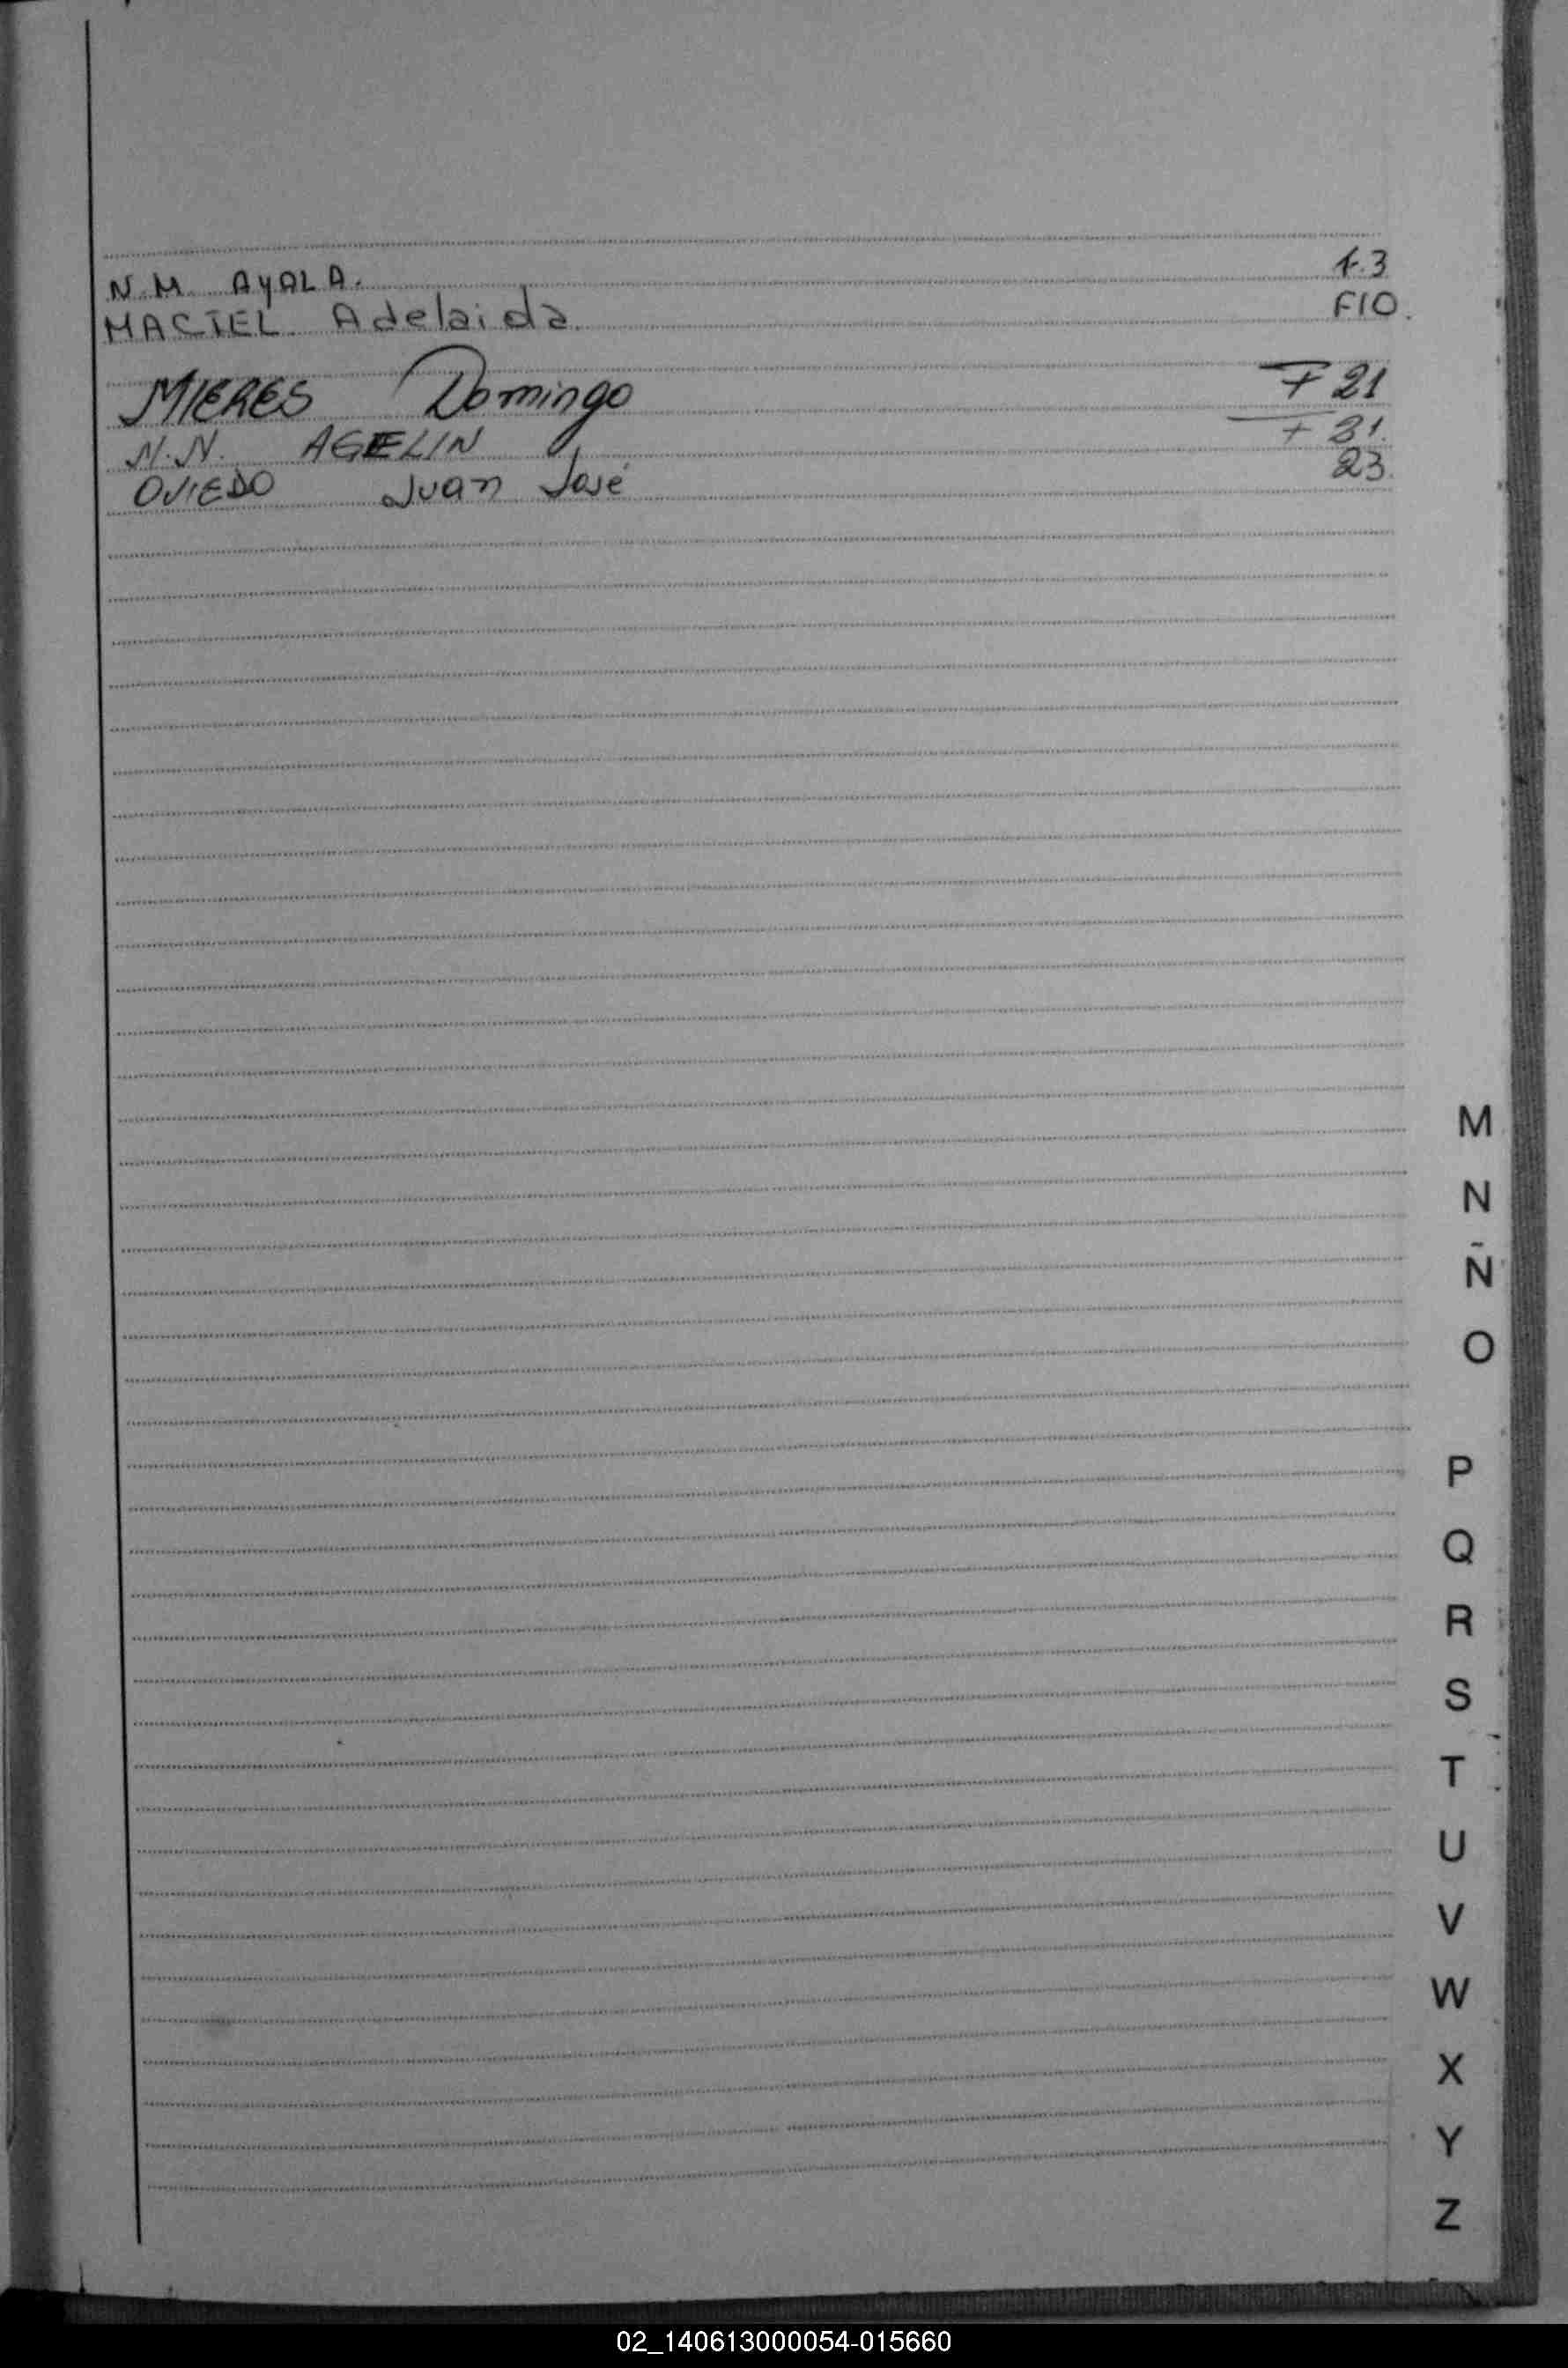 N.M. AYALA. f.3
MACIEL Adelaida. F10.
MIERES Domingo F 21
N.N. AGELIN F 21.
OVIEDO Juan José 23.
M
N
Ñ
O
P
Q
R
S
T
U
V
W
X
Y
Z
02_140613000054-015660